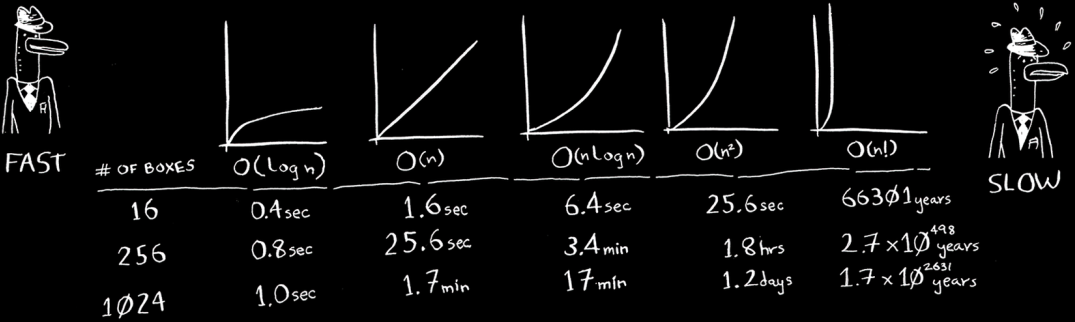 FAST
# OF BOXES O(log n) O(n) O(n log n) O(n²) O(n!)
SLOW
16 0.4sec 1.6sec 6.4sec 25.6sec 663Ø1years
256 0.8sec 25.6sec 3.4min 1.8hrs 2.7 x 1Ø⁴⁹⁸ years
1Ø24 1.0sec 1.7min 17min 1.2days 1.7 x 1Ø²⁶³¹ years